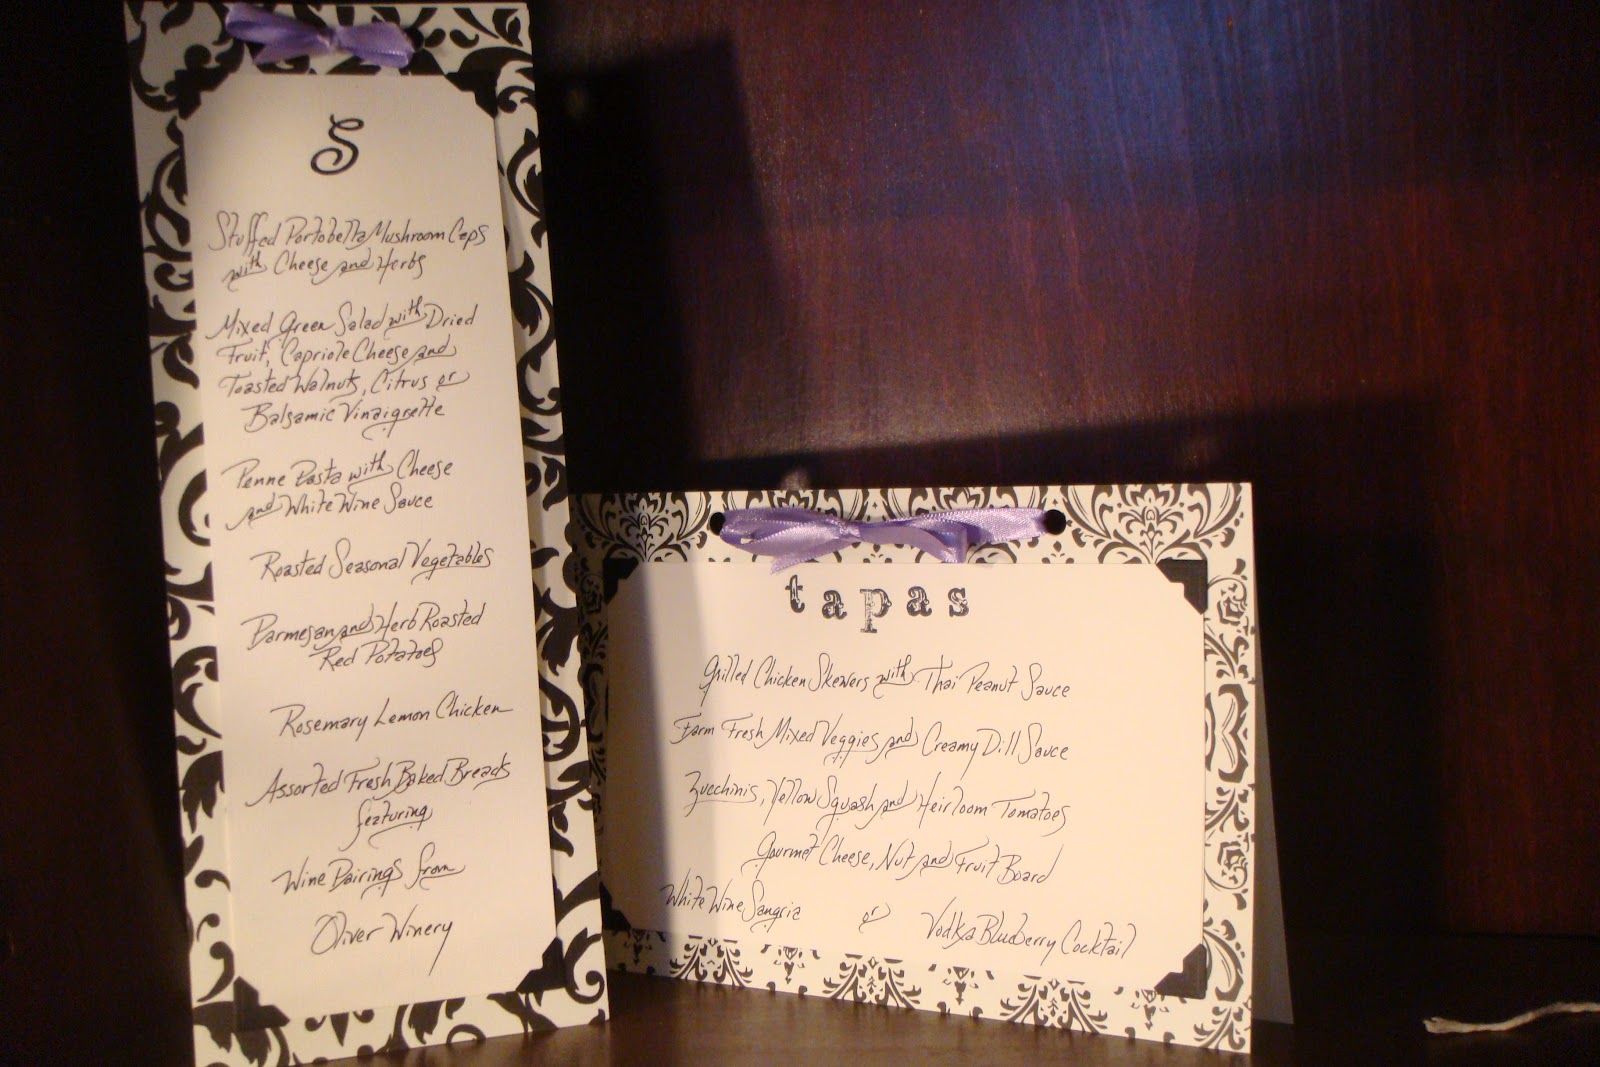 S
Stuffed Portobella Mushroom Caps
with Cheese and Herbs
Mixed Green Salad with Dried
Fruit, Capriole Cheese and
Toasted Walnuts, Citrus or
Balsamic Vinaigrette
Penne Pasta with Cheese
and White Wine Sauce
Roasted Seasonal Vegetables
Parmesan and Herb Roasted
Red Potatoes
Rosemary Lemon Chicken
Assorted Fresh Baked Breads
featuring
Wine Pairings from
Oliver Winery
tapas
Grilled Chicken Skewers with Thai Peanut Sauce
Farm Fresh Mixed Veggies and Creamy Dill Sauce
Zucchinis, Yellow Squash and Heirloom Tomatoes
Gourmet Cheese, Nut and Fruit Board
White Wine Sangria or Vodka Blueberry Cocktail